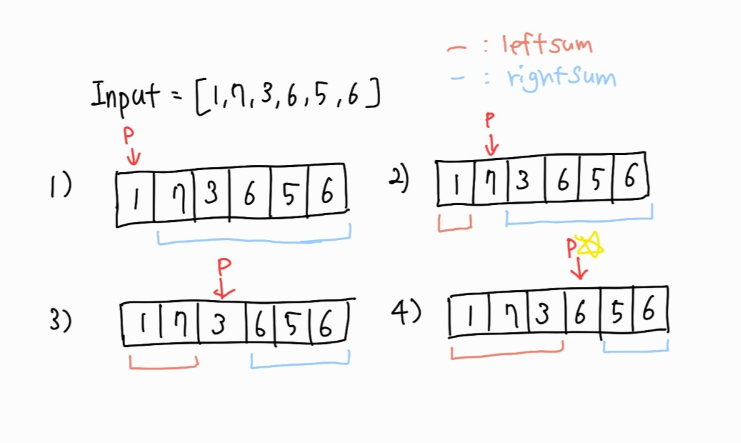 - : leftsum
- : rightSum
Input = [1,7,3,6,5,6]
P
1) 1 7 3 6 5 6
P
2) 1 7 3 6 5 6
P
3) 1 7 3 6 5 6
P
4) 1 7 3 6 5 6